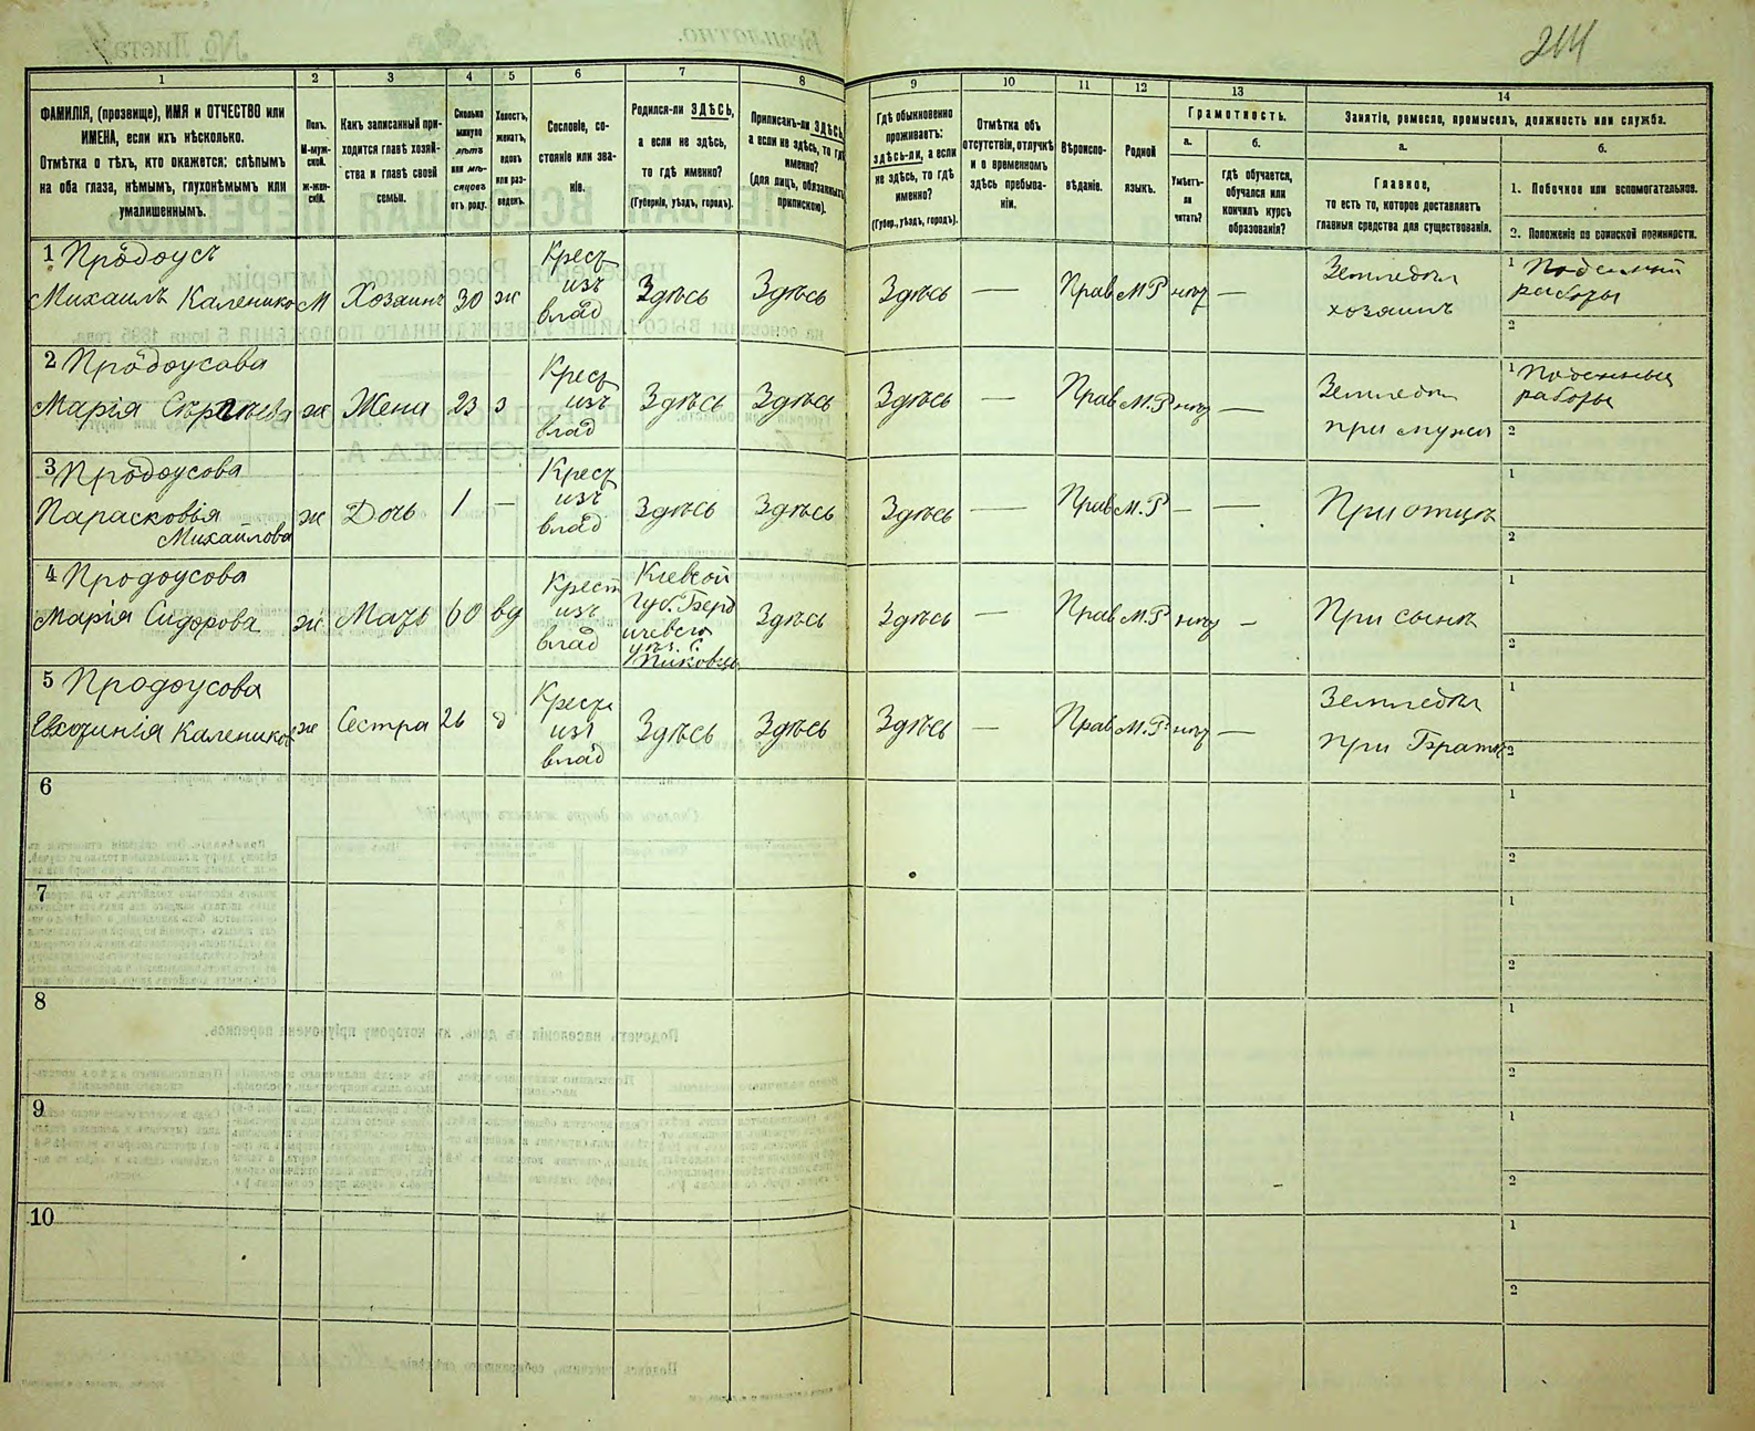 214
1
2
3
4
5
6
7
8
9
10
11
12
13
14
ФАМИЛІЯ, (прозвище), ИМЯ и ОТЧЕСТВО или
ИМЕНА, если ихъ нѣсколько.
Отмѣтка о тѣхъ, кто окажется: слѣпымъ
на оба глаза, нѣмымъ, глухонѣмымъ или
умалишеннымъ.
Полъ.
М-муж-
ской.
Ж-жен-
скій.
Какъ записанный при-
ходится главѣ хозяй-
ства и главѣ своей
семьи.
Сколько
минуло
лѣтъ
или мѣ-
сяцевъ
отъ роду.
Холостъ,
женатъ,
вдовъ
или раз-
веденъ.
Сословіе, со-
стояніе или зва-
ніе.
Родился-ли ЗДѢСЬ,
а если не здѣсь,
то гдѣ именно?
(Губернія, уѣздъ, городъ).
Приписанъ-ли ЗДѢСЬ,
а если не здѣсь, то гдѣ
именно?
(для лицъ, обязанныхъ
припискою).
Гдѣ обыкновенно
проживаетъ:
здѣсь-ли, а если
не здѣсь, то гдѣ
именно?
(Губер., уѣздъ, городъ).
Отмѣтка объ
отсутствіи, отлучкѣ
и о временномъ
здѣсь пребыва-
ніи.
Вѣроиспо-
вѣданіе.
Родной
языкъ.
Грамотность.
а.
Умѣетъ-
ли
читать?
б.
гдѣ обучается,
обучался или
кончилъ курсъ
образованія?
Занятіе, ремесло, промыселъ, должность или служба.
а.
Главное,
то есть то, которое доставляетъ
главныя средства для существованія.
б.
1. Побочное или вспомогательное.
2. Положеніе по воинской повинности.
1 Продоусъ
Михаилъ Каленико
М
Хозаинъ
30
ж
Крест
изъ
влад
Здѣсь
Здѣсь
Здѣсь
—
Прав
М Р
нѣт
—
Земледѣл
хозаинъ
1 Поденный
работы
2
2 Продоусова
Марія Сергѣева
ж
Жена
23
з
Крест
изъ
влад
Здѣсь
Здѣсь
Здѣсь
—
Прав
М.Р
нѣт
—
Земледѣл
при мужѣ
1 Поденные
работы
2
3 Продоусова
Парасковья
Михайлова
ж
Дочь
1
—
Крест
изъ
влад
Здѣсь
Здѣсь
Здѣсь
—
Прав
М.Р
—
—
При отцѣ
1
2
4 Продоусова
Марія Сидорова
ж
Мать
60
вд
Крест
изъ
влад
Кіевской
Губ. Берд
ичевско
уѣз. с.
Пиковець
Здѣсь
Здѣсь
—
Прав
М.Р
нѣт
—
При сынѣ
1
2
5 Продоусова
Каленикова
ж
Сестра
26
д
Крест
изъ
влад
Здѣсь
Здѣсь
Здѣсь
—
Прав
М.Р
нѣт
—
Земледѣл
при братѣ
1
2
6
1
2
7
1
2
8
1
2
9
1
2
10
1
2